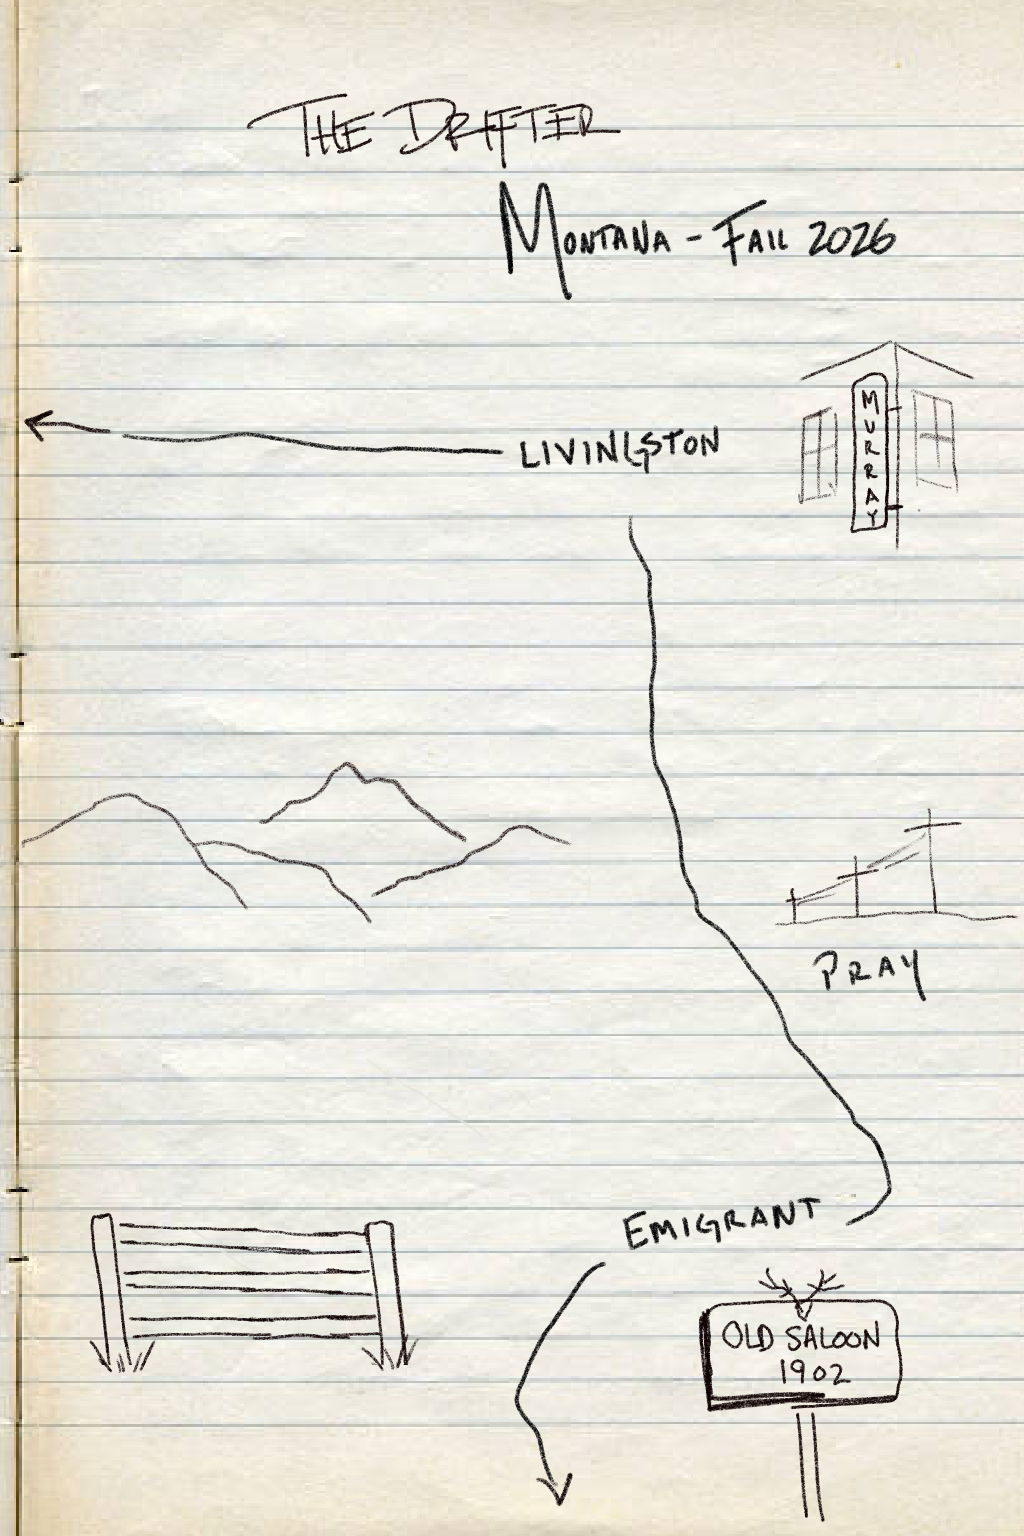 THE DRIFTER
MONTANA - FALL 2026
LIVINGSTON
MURRAY
PRAY
EMIGRANT
OLD SALOON
1902